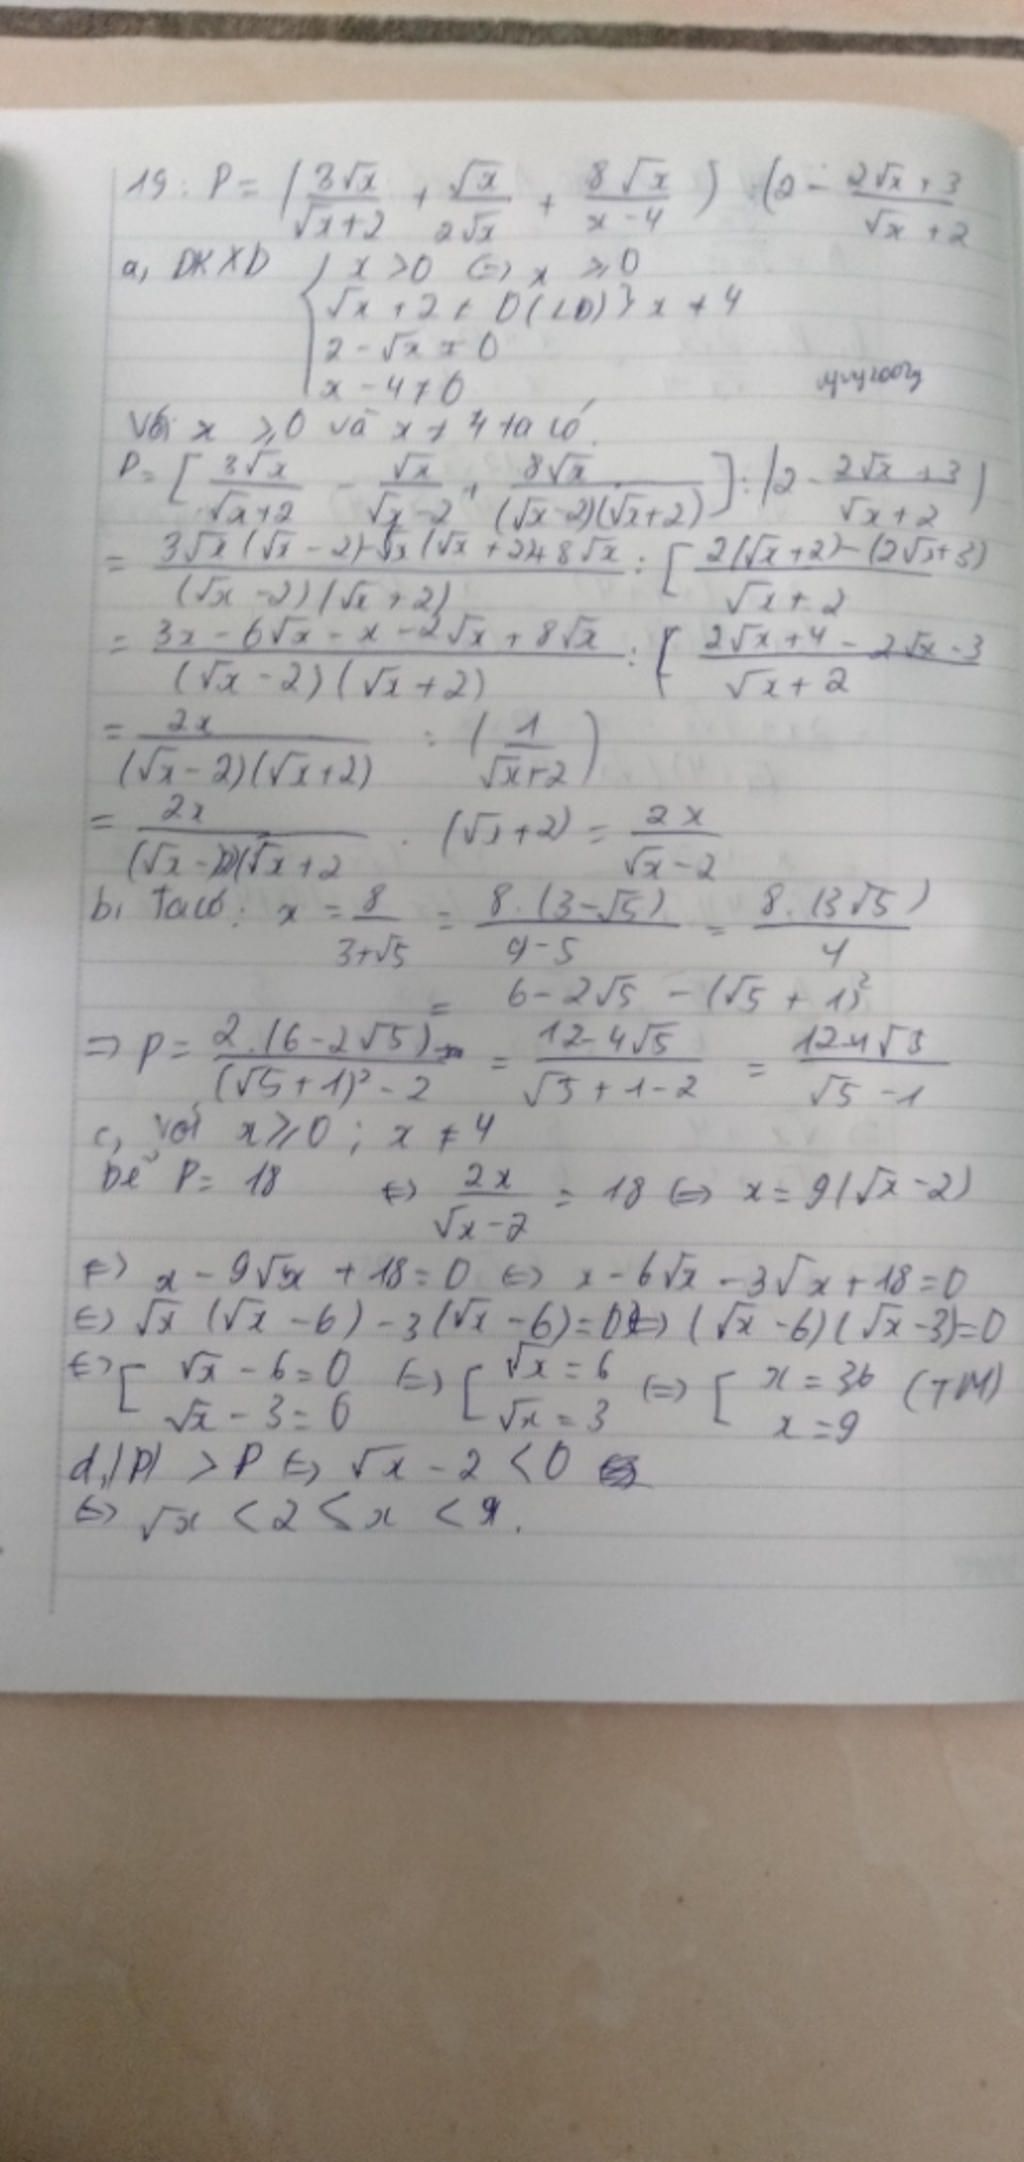 19: P = ( 3√x / √x+2 + √x / 2√x + 8√x / x-4 ) : ( 2 - 2√x+3 / √x+2
a, ĐKXĐ { x > 0 ⇔ x ≥ 0
√x + 2 ≠ 0 (LĐ) } x ≠ 4
2 - √x ≠ 0
x - 4 ≠ 0
Với x ≥ 0 và x ≠ 4 ta có
P = [ 3√x / √x+2 - √x / √x-2 + 8√x / (√x-2)(√x+2) ] : ( 2 - 2√x+3 / √x+2 )
= 3√x(√x-2)-√x(√x+2)+8√x / (√x-2)(√x+2) : [ 2(√x+2)-(2√x+3) / √x+2
= 3x-6√x-x-2√x+8√x / (√x-2)(√x+2) : [ 2√x+4-2√x-3 / √x+2
= 2x / (√x-2)(√x+2) : ( 1 / √x+2 )
= 2x / (√x-2)(√x+2 . (√x+2) = 2x / √x-2
b, Ta có: x = 8 / 3+√5 = 8.(3-√5) / 9-5 = 8.(3√5) / 4
= 6-2√5 - (√5+1)²
⇒ P = 2.(6-2√5) / (√5+1)²-2 = 12-4√5 / √5+1-2 = 12-4√5 / √5-1
c, Với x ≥ 0 ; x ≠ 4
Để P = 18 ⇔ 2x / √x-2 = 18 ⇔ x = 9(√x-2)
⇔ x - 9√x + 18 = 0 ⇔ x - 6√x - 3√x + 18 = 0
⇔ √x (√x-6) - 3(√x-6) = 0 ⇔ (√x-6)(√x-3) = 0
⇔ [ √x - 6 = 0 ⇔ [ √x = 6 ⇔ [ x = 36 (TM)
√x - 3 = 0 √x = 3 x = 9
d, |P| > P ⇔ √x - 2 < 0
⇔ √x < 2 ≤ x < 4.